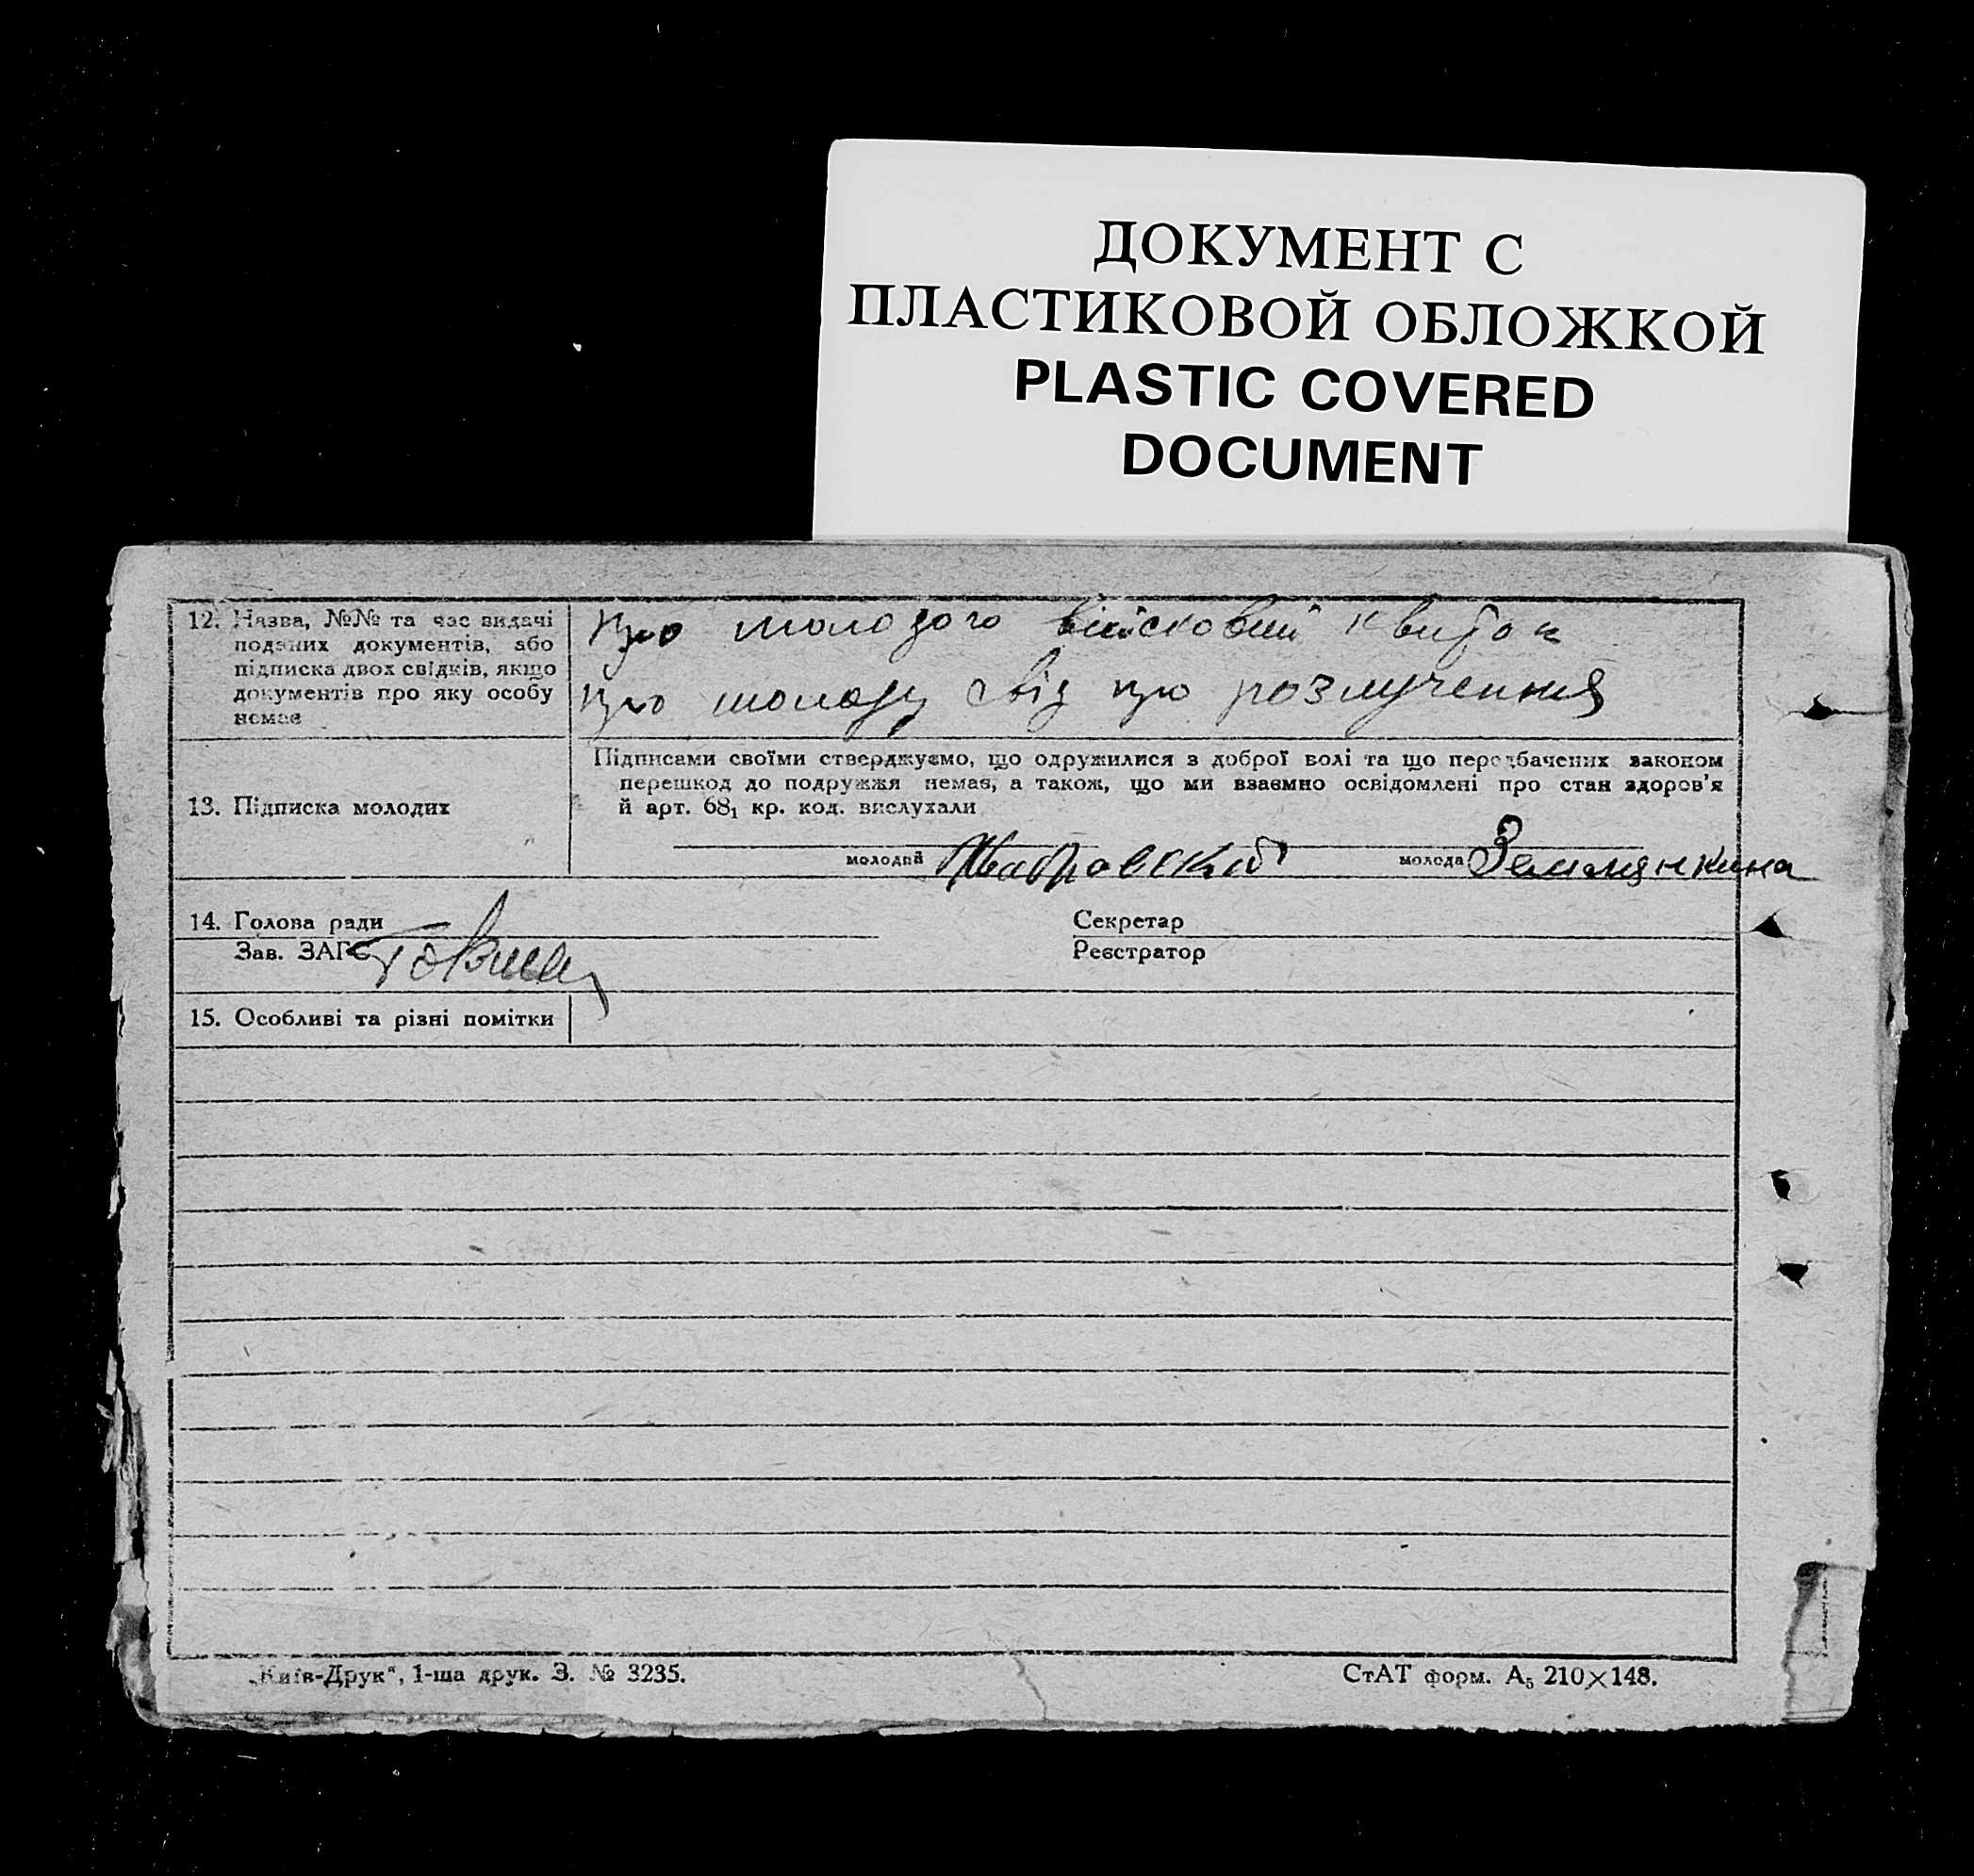 ДОКУМЕНТ С
ПЛАСТИКОВОЙ ОБЛОЖКОЙ
PLASTIC COVERED
DOCUMENT
12. Назва, №№ та час видачі
поданих документів, або
підписка двох свідків, якщо
документів про яку особу
немає
Про молодого військовий квиток
Про молоду свід про розлучення
13. Підписка молодих
Підписами своїми стверджуємо, що одружилися з доброї волі та що передбачених законом
перешкод до подружжя немає, а також, що ми взаємно освідомлені про стан здоров'я
й арт. 68₁ кр. код. вислухали
молодий
молода Землянкина
14. Голова ради
Секретар
Зав. ЗАГС
Реєстратор
15. Особливі та різні помітки
„Київ-Друк“, 1-ша друк. З. № 3235.
СтАТ форм. А₅ 210×148.